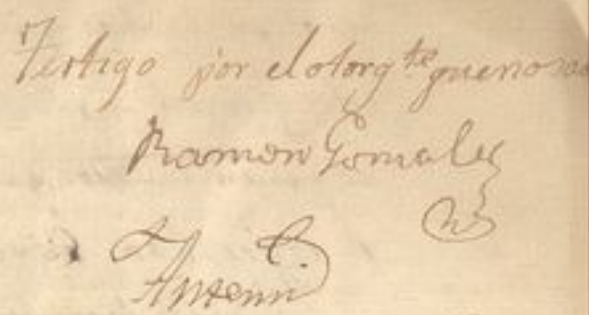 Testigo por el otorg.te que no sa
Ramon Gonzalez
Antem